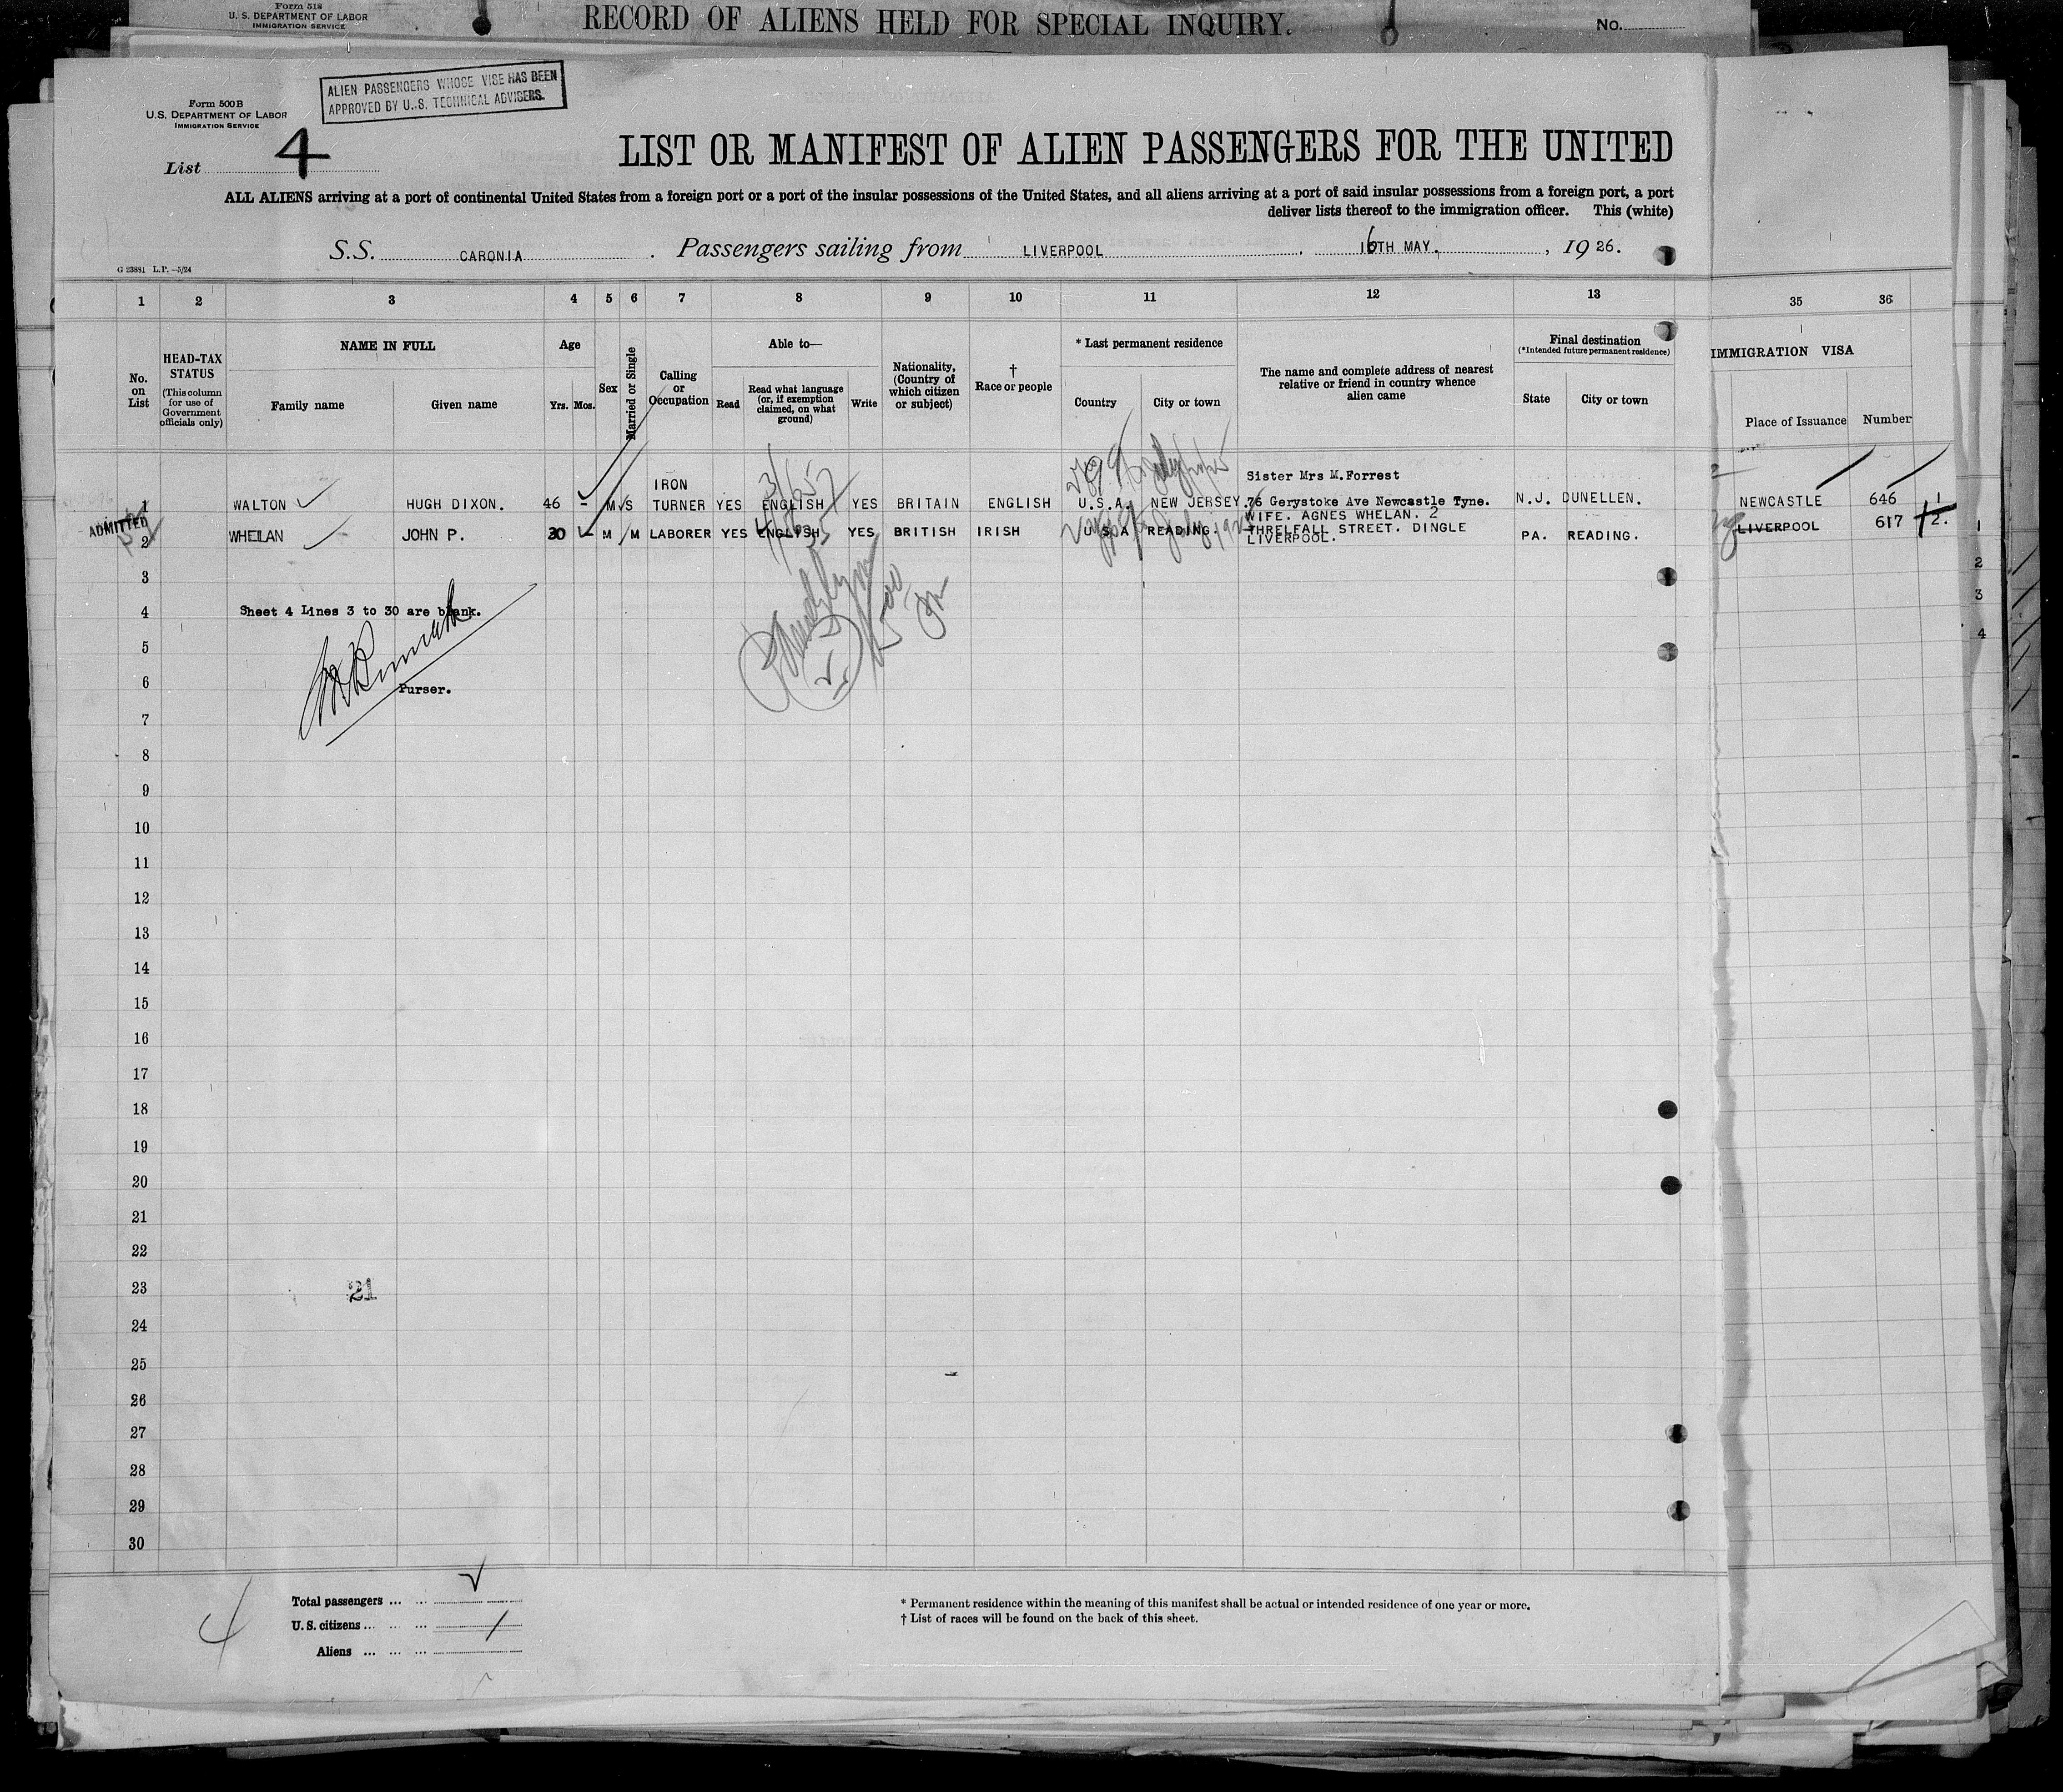 Form 518
U. S. DEPARTMENT OF LABOR
IMMIGRATION SERVICE
RECORD OF ALIENS HELD FOR SPECIAL INQUIRY.
No.
ALIEN PASSENGERS WHOSE VISE HAS BEEN
APPROVED BY U.S. TECHNICAL ADVISERS.
Form 500 B
U.S. DEPARTMENT OF LABOR
IMMIGRATION SERVICE
List 4
LIST OR MANIFEST OF ALIEN PASSENGERS FOR THE UNITED
ALL ALIENS arriving at a port of continental United States from a foreign port or a port of the insular possessions of the United States, and all aliens arriving at a port of said insular possessions from a foreign port, a port
deliver lists thereof to the immigration officer. This (white)
S.S. CARONIA . Passengers sailing from LIVERPOOL , 16TH MAY. , 19 26.
G 23881 L.P.—5/24
1 2 3 4 5 6 7 8 9 10 11 12 13 35 36
No. on List
HEAD-TAX STATUS
(This column for use of Government officials only)
NAME IN FULL
Family name Given name
Age
Yrs. Mos.
Sex
Married or Single
Calling or Occupation
Able to—
Read
Read what language (or, if exemption claimed, on what ground)
Write
Nationality, (Country of which citizen or subject)
† Race or people
* Last permanent residence
Country City or town
The name and complete address of nearest relative or friend in country whence alien came
Final destination
(*Intended future permanent residence)
State City or town
IMMIGRATION VISA
Place of Issuance Number
1 WALTON HUGH DIXON. 46 - M S IRON TURNER YES ENGLISH YES BRITAIN ENGLISH U.S.A. NEW JERSEY. Sister Mrs M.Forrest 76 Gerystoke Ave Newcastle Tyne. N.J. DUNELLEN. NEWCASTLE 646 1
ADMITTED
2 WHELAN JOHN P. 30 M M LABORER YES ENGLISH YES BRITISH IRISH U S A READING. WIFE. AGNES WHELAN. 2 THRELFALL STREET. DINGLE LIVERPOOL. PA. READING. LIVERPOOL 617 2.
1
2
3
4
3
4 Sheet 4 Lines 3 to 30 are blank.
5
6 Purser.
7
8
9
10
11
12
13
14
15
16
17
18
19
20
21
22
23 21
24
25
26
27
28
29
30
4
Total passengers ... ...
U.S. citizens ... ... ...
Aliens ... ... ...
* Permanent residence within the meaning of this manifest shall be actual or intended residence of one year or more.
† List of races will be found on the back of this sheet.